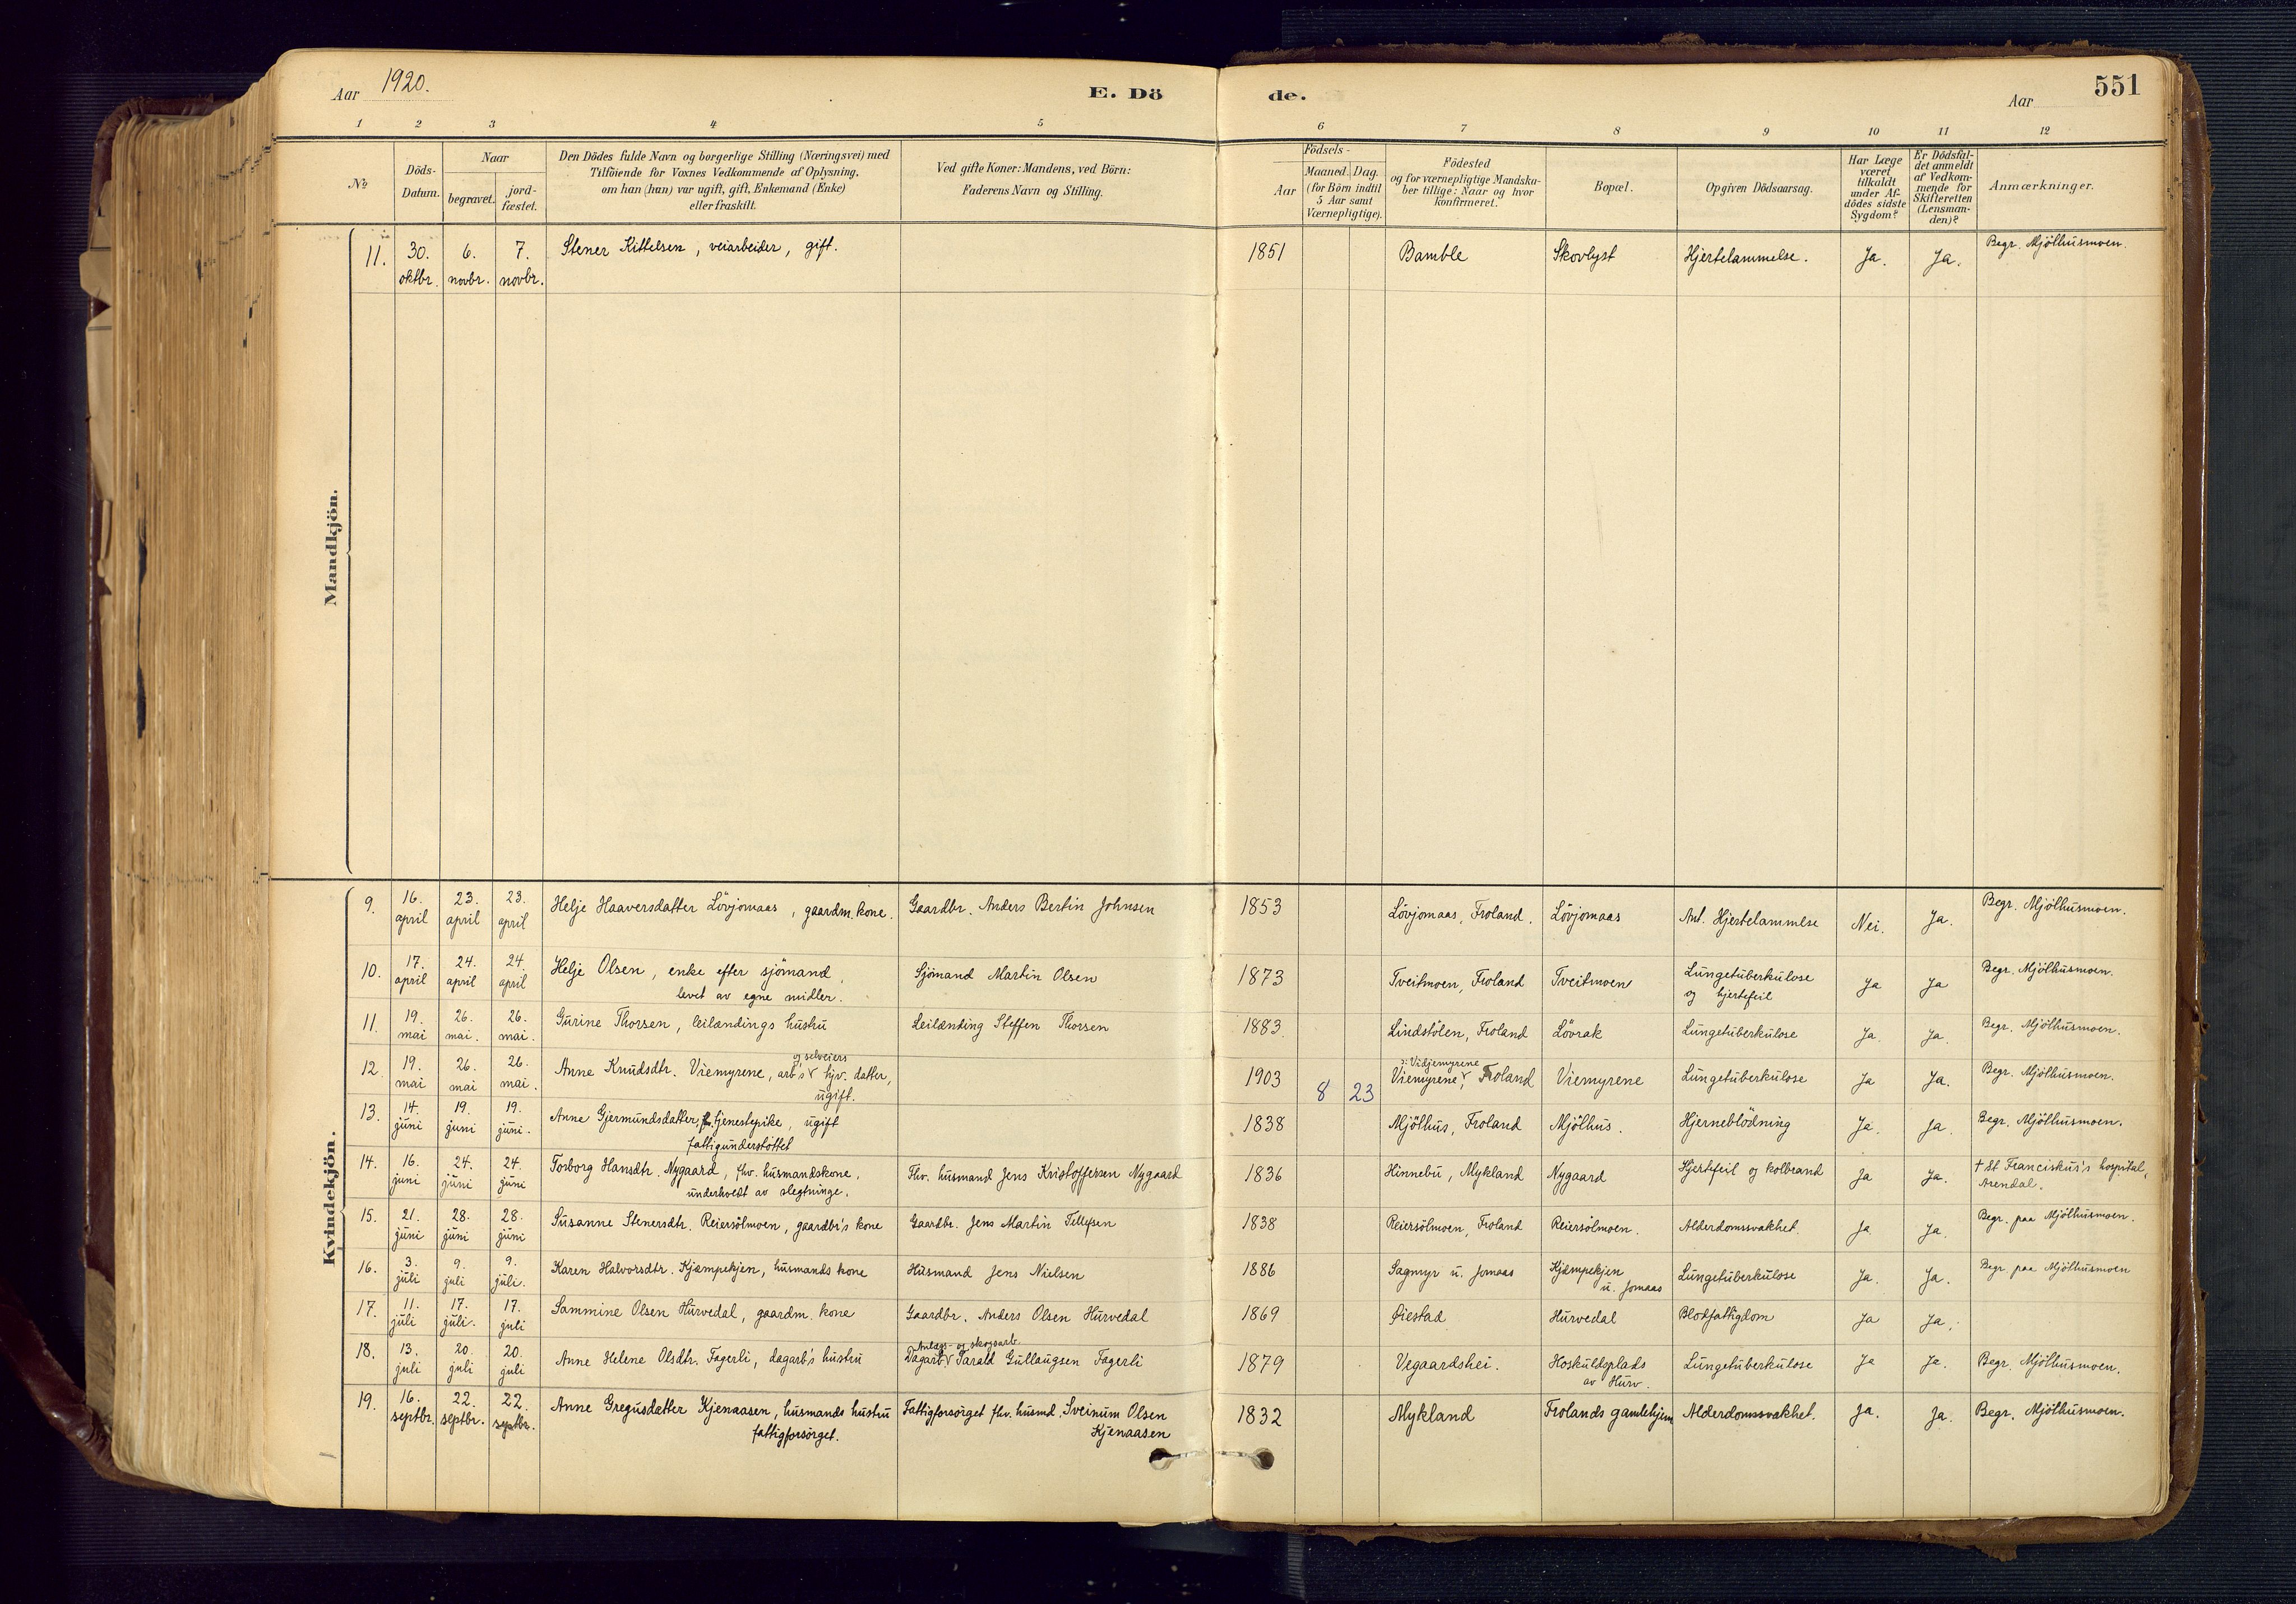 Aar 1920.
E. Dö
de.
Aar
551
1 2 3 4 5 6 7 8 9 10 11 12
No
Döds-
Datum.
Naar
begravet.
jord-
fæstet.
Den Dödes fulde Navn og borgerlige Stilling (Næringsvei) med
Tilföiende for Voxnes Vedkommende af Oplysning,
om han (hun) var ugift, gift, Enkemand (Enke)
eller fraskilt.
Ved gifte Koner: Mandens, ved Börn:
Faderens Navn og Stilling.
Födsels-
Aar
Maaned. Dag.
(for Börn indtil
5 Aar samt
Værnepligtige).
Födested
og for værnepligtige Mandska-
ber tillige: Naar og hvor
konfirmeret.
Bopæl.
Opgiven Dödsaarsag.
Har Læge
været
tilkaldt
under Af-
dödes sidste
Sygdom?
Er Dödsfal-
det anmeldt
af Vedkom-
mende for
Skifteretten
(Lensman-
den)?
Anmærkninger.
Mandkjön.
11. 30. 6. 7. Stener Kittelsen, veiarbeider, gift. 1851 Bamble Skovlyst Hjertelammelse. Ja. Ja. Begr. Mjölhusmoen.
oktbr. novbr. novbr.
Kvindekjön.
9. 16. 23. 23. Helje Haaversdatter Lövjomaas, gaardm. kone. Gaardbr. Anders Bertin Johnsen 1853 Lövjomaas, Froland. Lövjomaas Ant. Hjertelammelse Nei. Ja. Begr. Mjölhusmoen.
april april april
10. 17. 24. 24. Helje Olsen, enke efter sjömand, Sjömand Martin Olsen 1873 Tveitmoen, Froland Tveitmoen Lungetuberkulose Ja Ja Begr. Mjölhusmoen.
april april april levet av egne midler. og hjertefeil
11. 19. 26. 26. Gurine Thorsen, leilændings hustru Leilænding Steffen Thorsen 1883 Lindstölen, Froland Lövrak Lungetuberkulose Ja. Ja. Begr. Mjölhusmoen.
mai mai. mai.
og selveiers ɔ: Vidjemyrene
12 19. 26. 26. Anne Knudsdtr. Viemyrene, arb's hjv. datter, 1903 8 23 Viemyrene, Froland Viemyrene Lungetuberkulose Ja Ja. Begr. Mjölhusmoen.
mai mai mai. ugift.
13. 14. 19. 19. Anne Gjermundsdatter, tjenestepike, ugift 1838 Mjölhus, Froland Mjölhus. Hjerneblödning Ja. Ja. Begr. Mjölhusmoen.
juni juni juni. fattigunderstöttet
14. 16. 24. 24. Torborg Hansdtr. Nygaard, fhv. husmandskone, Fhv. husmand Jens Kristoffersen Nygaard 1836 Hinnebu, Mykland Nygaard Hjertefeil og kolbrand Ja Ja. † St Franciskus's hospital,
juni juni juni underholdt av slegtninge. Arendal.
15. 21. 28. 28. Susanne Stenersdtr. Reiersölmoen, gaardbr's kone Gaardbr. Jens Martin Tellefsen 1838 Reiersölmoen, Froland Reiersölmoen. Alderdomssvakhet. Ja Ja. Begr. paa Mjölhusmoen.
juni juni juni
16. 3. 9. 9. Karen Halvorsdtr. Kjæmpekjen, husmands kone Husmand Jens Nielsen 1886 Sagmyr u. Jomaas Kjæmpekjen Lungetuberkulose Ja. Ja. Begr. paa Mjölhusmoen
juli juli juli. u. Jomaas
17. 11. 17. 17. Sammine Olsen Hurvedal, gaardm. kone Gaardbr. Anders Olsen Hurvedal 1869 Øiestad Hurvedal Blodfattigdom Ja Ja.
juli juli. juli
Anlægs- og skogsarb.
18. 13. 20. 20. Anne Helene Olsdtr. Fagerli, dagarb's hustru Dagarb. Tarald Gullaugsen Fagerli 1879 Vegaardshei. Hoskuldsplads Lungetuberkulose Ja Ja. Begr. Mjölhusmoen.
juli juli juli av Hurv.
19. 16. 22. 22. Anne Gregusdatter Kjenaasen, husmands hustru Fattigforsörget fhv. husmd. Sveinum Olsen 1832 Mykland Frolands gamlehjem Alderdomssvakhet. Ja. Ja. Begr. Mjölhusmoen.
septbr. septbr. septbr. fattigforsörget. Kjenaasen